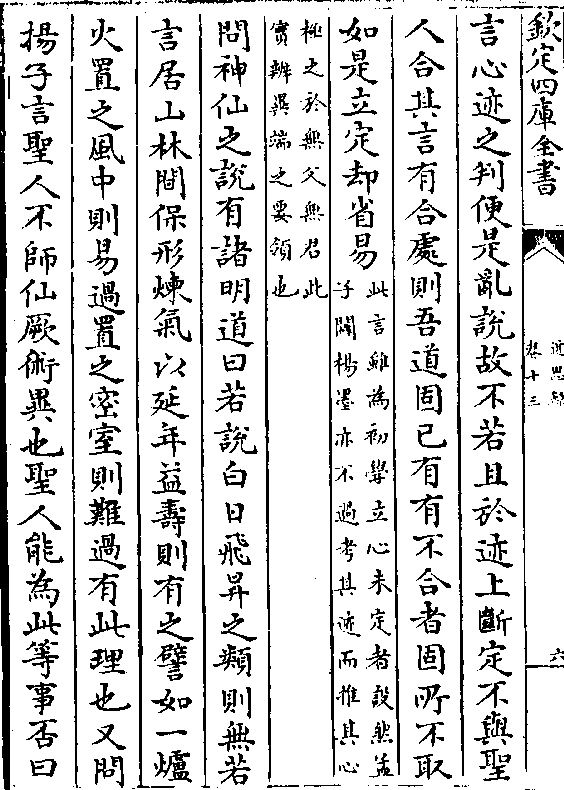 欽定四庫全書
近思錄
卷十三
六
言心迹之判便是亂說故不若且於迹上斷定不與聖
人合其言有合處則吾道固已有有不合者固所不取
如是立定却省易
此言雖為初學立心未定者設然孟
子闢楊墨亦不過考其迹而推其心
極之於無父無君此
實辨異端之要領也
問神仙之說有諸明道曰若說白日飛昇之類則無若
言居山林間保形煉氣以延年益壽則有之譬如一爐
火置之風中則易過置之密室則難過有此理也又問
揚子言聖人不師仙厥術異也聖人能為此等事否曰